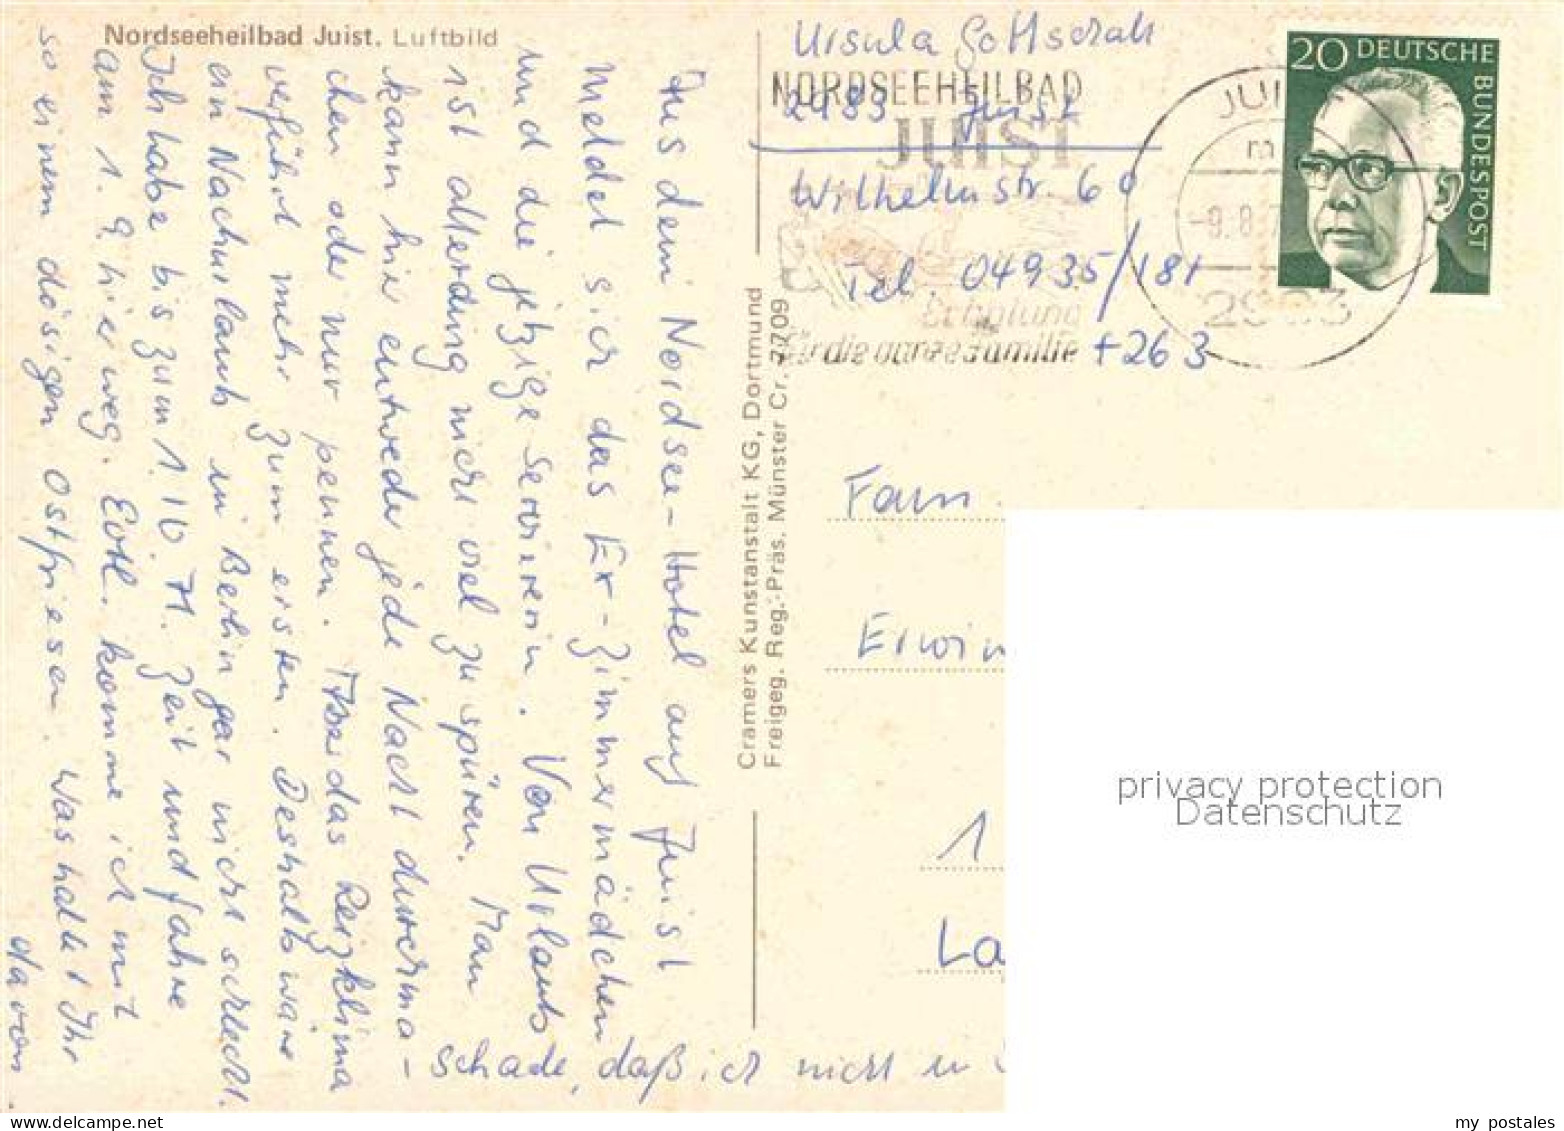 Nordseeheilbad Juist, Luftbild
Aus dem Nordsee-Hotel auf Juist
meldet sich das Ex-Zimmermädchen
und die jetzige Serviererin. Von Urlaub
ist allerding nicht viel zu spüren. Man
kann hier entweder jede Nacht durchma-
chen oder nur pennen. Aber das Reizklima
verführt mehr zum ersten. Deshalb wäre
ein Nachurlaub in Berlin gar nicht schlecht.
Ich habe bis zum 1.10.71. Zeit und fahre
am 1.9. hier weg. Evtl. komme ich mit
so einem dösigen Ostfriesen. Was haltet Ihr
davon
schade, daß ich nicht in
Cramers Kunstanstalt KG, Dortmund
Freigeg. Reg.-Präs. Münster Cr. 7709
Ursula Gottschalk
2983 Juist
Wilhelmstr. 60
Tel. 04935/181
+263
NORDSEEHEILBAD
JUIST
Erholung
für die ganze Familie
JUIST
m
-9.8.7
2983
20 DEUTSCHE
BUNDESPOST
Fam.
Erwin
1
La
privacy protection
Datenschutz
my postales